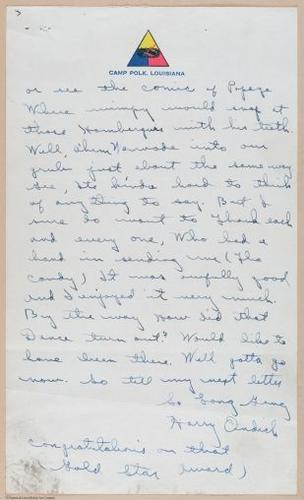 3
CAMP POLK, LOUISIANA
or see the comic of Popeye
Where wimpy would snap at
those Hamburgers with his teeth.
Well, into our
grub just about the same way
Gee, its kinda hard to think
of anything to say. But I
sure do want to thank each
and every one, Who had a
hand in sending me (The
Candy) It was awfully good
and I enjoyed it very much.
By the way How did that
Dance turn out? Would like to
have been there. Well gotta go
now. So till my next letter
So Long Gang
Harry
Congratulations on that
Gold Star Award)